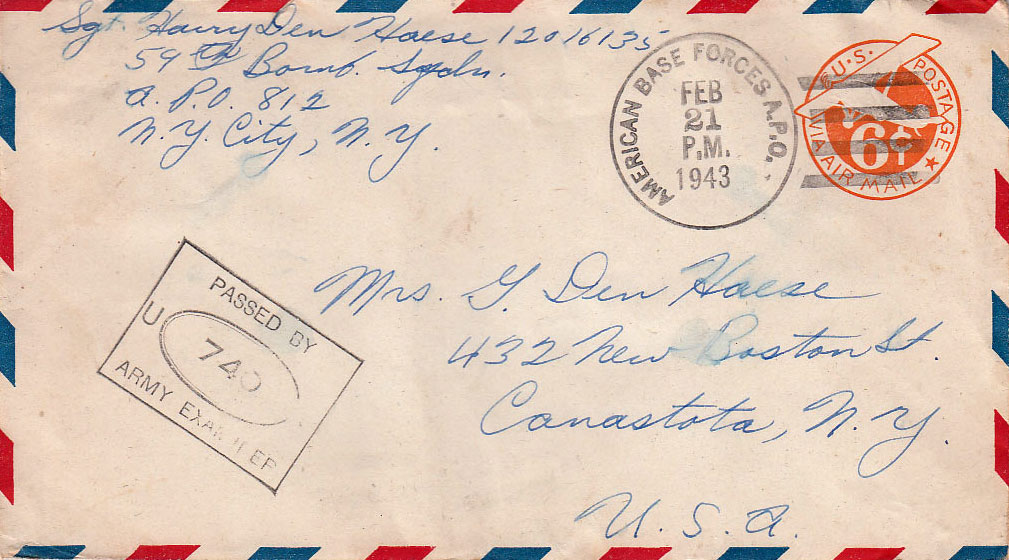 Sgt. Harry Den Haese 12016135
59th Bomb. Sqdn.
A. P.O. 812
N.Y. City, N.Y.
AMERICAN BASE FORCES A.P.O.
FEB
21
P.M.
1943
U.S. POSTAGE
6¢
VIA AIR MAIL
PASSED BY
U
740
ARMY EXAMINER
Mrs. G Den Haese
432 New Boston St.
Canastota, N.Y.
U.S.A.